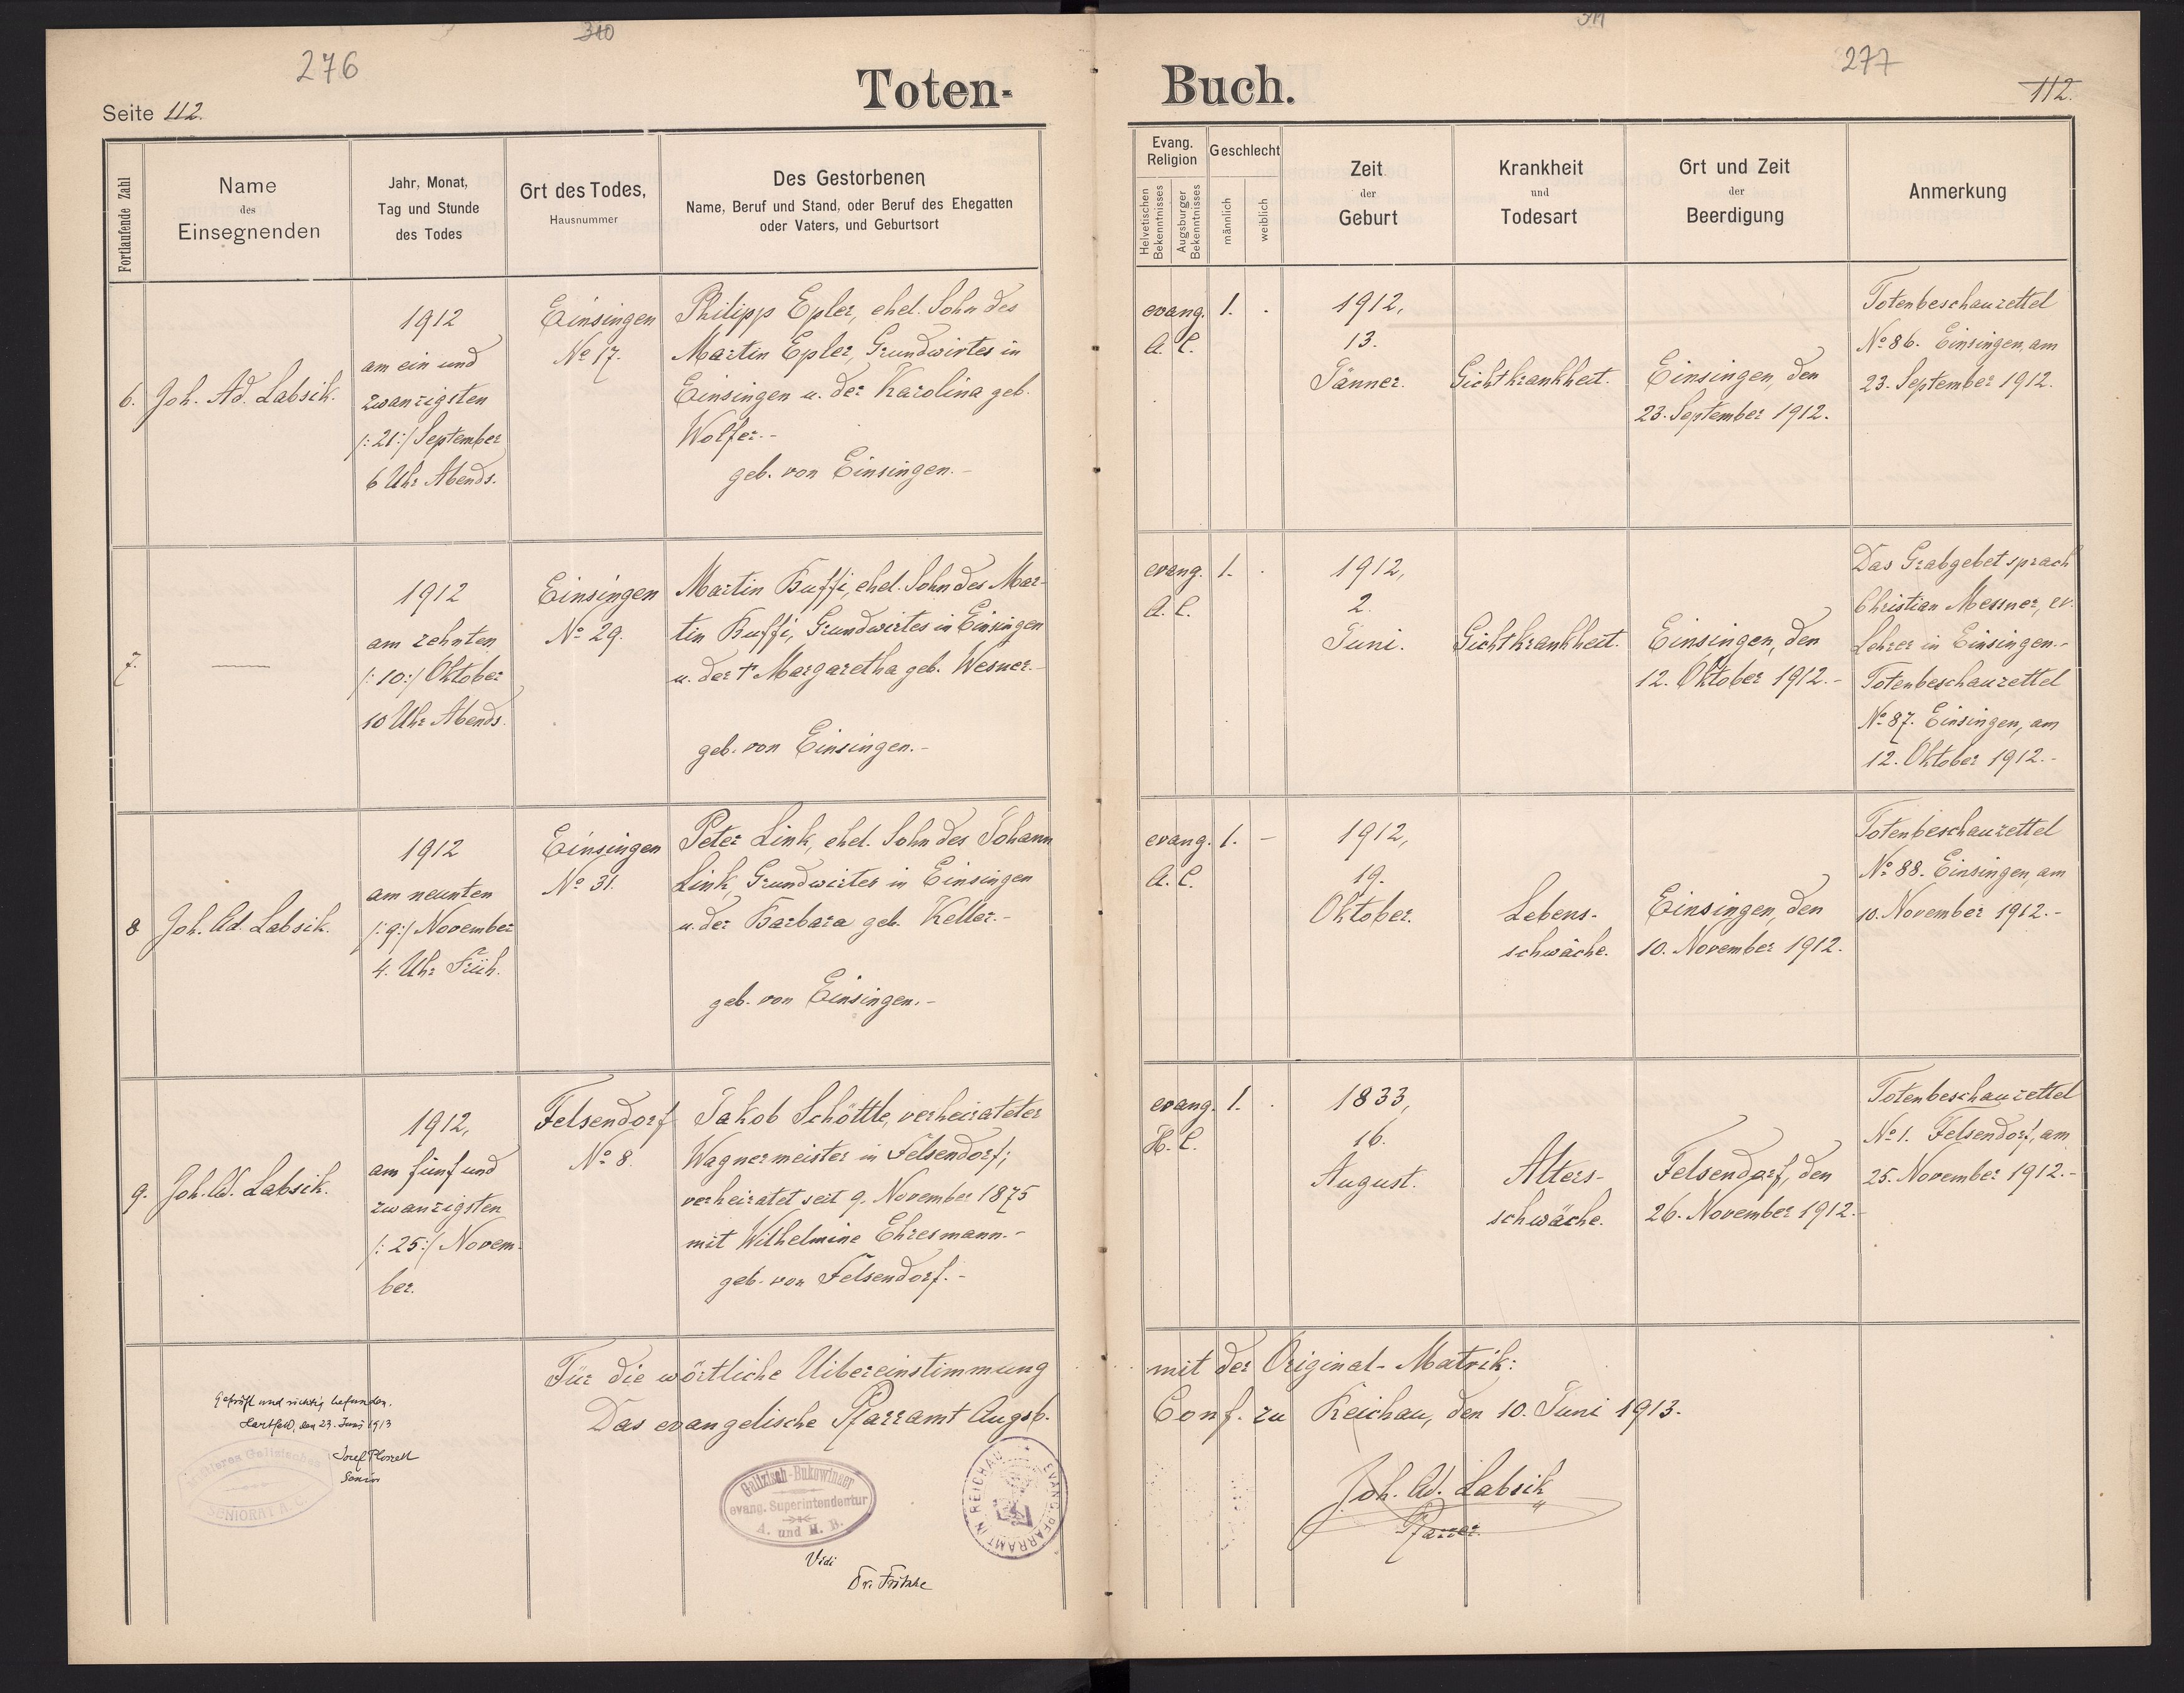 276
310
Toten-
Seite 112.
Fortlaufende Zahl
Name
des
Einsegnenden
Jahr, Monat,
Tag und Stunde
des Todes
Ort des Todes,
Hausnummer
Des Gestorbenen
Name, Beruf und Stand, oder Beruf des Ehegatten
oder Vaters, und Geburtsort
6.
Joh. Ad. Labsik.
1912
am ein und
zwanzigsten
/:21:/ September
6 Uhr Abends.
Einsingen
No 17.
Philipp Epler, ehel. Sohn des
Martin Epler, Grundwirtes in
Einsingen u. der Karolina geb.
Wolfer.-
geb. von Einsingen.-
7.
1912
am zehnten
/:10:/ Oktober
10 Uhr Abends.
Einsingen
No 29.
Martin Buffi, ehel. Sohn des Mar-
tin Buffi, Grundwirtes in Einsingen
u. der † Margaretha geb. Wesner.-
geb. von Einsingen.-
8
Joh. Ad. Labsik.
1912
am neunten
/:9:/ November
4. Uhr Früh.
Einsingen
No 31.
Peter Link, ehel. Sohn des Johann
Link, Grundwirtes in Einsingen
u. der Barbara geb. Keller.-
geb. von Einsingen.-
9.
Joh. Ad. Labsik.
1912,
am fünf und
zwanzigsten
/:25:/ Novem-
ber.
Felsendorf
No 8.
Jakob Schöttle, verheirateter
Wagnermeister in Felsendorf;
verheiratet seit 9. November 1875
mit Wilhelmine Ehresmann.-
geb. von Felsendorf.-
Für die wörtliche Uibereinstimmung
Das evangelische Pfarramt Augsb.
Geprüft und richtig befunden.
Hartfeld, den 23. Juni 1913
Josef
Senior
Mittleres Galizisches
SENIORAT A. C.
Galizisch-Bukowinaer
evang. Superintendentur
A. und H. B.
EVANG. PFARRAMT IN REICHAU
Vidi
Dr. Fritsche
311
277
Buch.
112.
Evang.
Religion
Helvetischen
Bekenntnisses
Augsburger
Bekenntnisses
Geschlecht
männlich
weiblich
Zeit
der
Geburt
Krankheit
und
Todesart
Ort und Zeit
der
Beerdigung
Anmerkung
evang.
A. C.
1.
1912,
13.
Jänner.
Gichtkrankheit.
Einsingen, den
23. September 1912.
Totenbeschauzettel
No 86. Einsingen, am
23. September 1912.
evang.
A. C.
1.
1912,
2.
Juni.
Gichtkrankheit.
Einsingen, den
12. Oktober 1912.-
Das Grabgebet sprach
Christian Messner, ev.
Lehrer in Einsingen.-
Totenbeschauzettel
No 87. Einsingen, am
12. Oktober 1912.-
evang.
A. C.
1.
-
1912,
19.
Oktober.
Lebens-
schwäche.
Einsingen, den
10. November 1912.
Totenbeschauzettel
No 88. Einsingen, am
10. November 1912.-
evang.
H. C.
1.
1833,
16.
August.
Alters-
schwäche.
Felsendorf, den
26. November 1912.-
Totenbeschauzettel
No 1. Felsendorf, am
25. November 1912.-
mit der Original-Matrik:
Conf. zu Reichau, den 10. Juni 1913.
Joh. Ad. Labsik
Pfarrer.